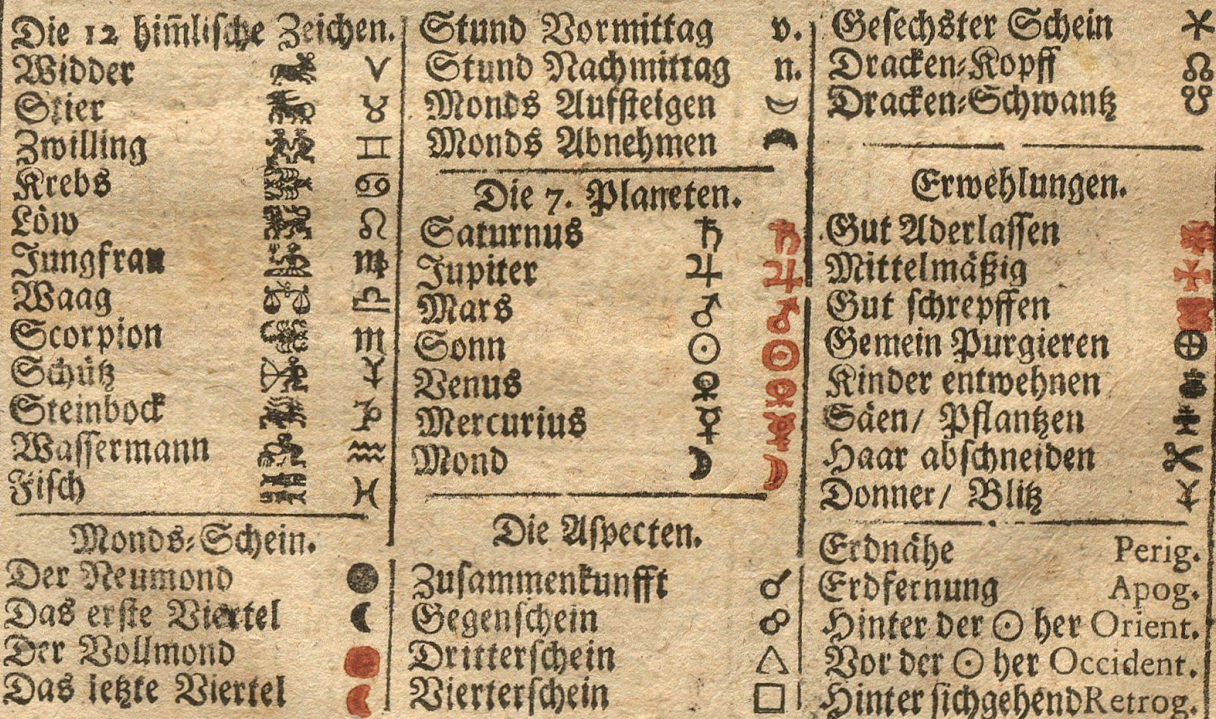 Die 12 him̃lische Zeichen.
Widder ♈
Stier ♉
Zwilling ♊
Krebs ♋
Löw ♌
Jungfrau ♍
Waag ♎
Scorpion ♏
Schütz ♐
Steinbock ♑
Wassermann ♒
Fisch ♓
Monds-Schein.
Der Neumond
Das erste Viertel
Der Vollmond
Das letzte Viertel
Stund Vormittag v.
Stund Nachmittag n.
Monds Auffsteigen
Monds Abnehmen
Die 7. Planeten.
Saturnus ♄ ♄
Jupiter ♃ ♃
Mars ♂ ♂
Sonn ☉ ☉
Venus ♀ ♀
Mercurius ☿ ☿
Mond ☽ ☽
Die Aspecten.
Zusammenkunfft ☌
Gegenschein ☍
Dritterschein △
Vierterschein □
Gesechster Schein ⚹
Dracken-Kopff ☊
Dracken-Schwantz ☋
Erwehlungen.
Gut Aderlassen
Mittelmäßig
Gut schrepffen
Gemein Purgieren
Kinder entwehnen
Säen/ Pflantzen
Haar abschneiden
Donner/ Blitz
Erdnähe Perig.
Erdfernung Apog.
Hinter der ☉ her Orient.
Vor der ☉ her Occident.
Hinter sichgehend Retrog.